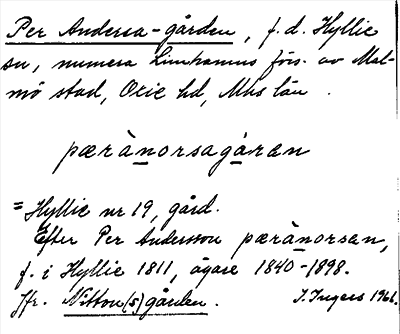 Per Andersa-gården, f.d. Hyllie
sn, numera Limhamns förs. av Mal-
mö stad, Oxie hd, Mhs län.
pærànorsagåran
= Hyllie nr 19, gård.
Efter Per Andersson pærànorsan,
f. i Hyllie 1811, ägare 1840-1898.
Jfr. Nitton(s)gården.
I. Ingers 1966.